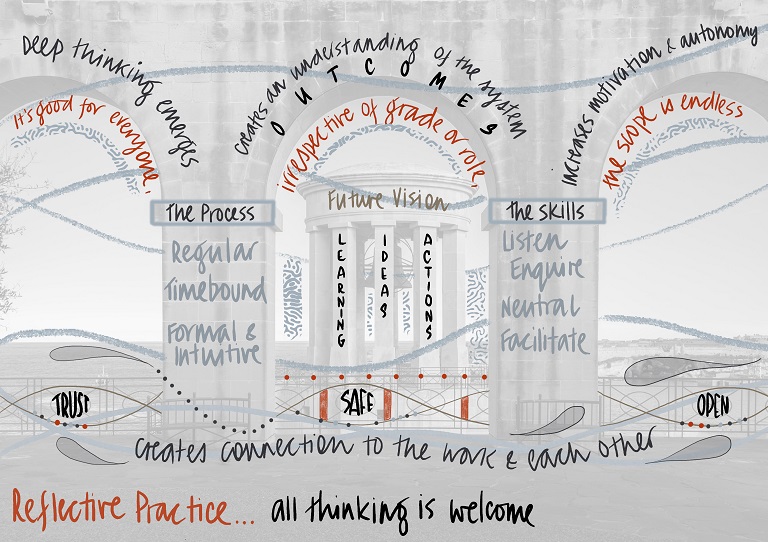 Deep thinking emerges
creates an understanding of the system
OUTCOMES
increases motivation & autonomy
it's good for everyone.
irrespective of grade or role,
the scope is endless
The Process
Regular
Timebound
Formal &
Intuitive
Future Vision
LEARNING
IDEAS
ACTIONS
The Skills
Listen
Enquire
Neutral
Facilitate
TRUST
SAFE
OPEN
creates connection to the work & each other
Reflective Practice... all thinking is welcome